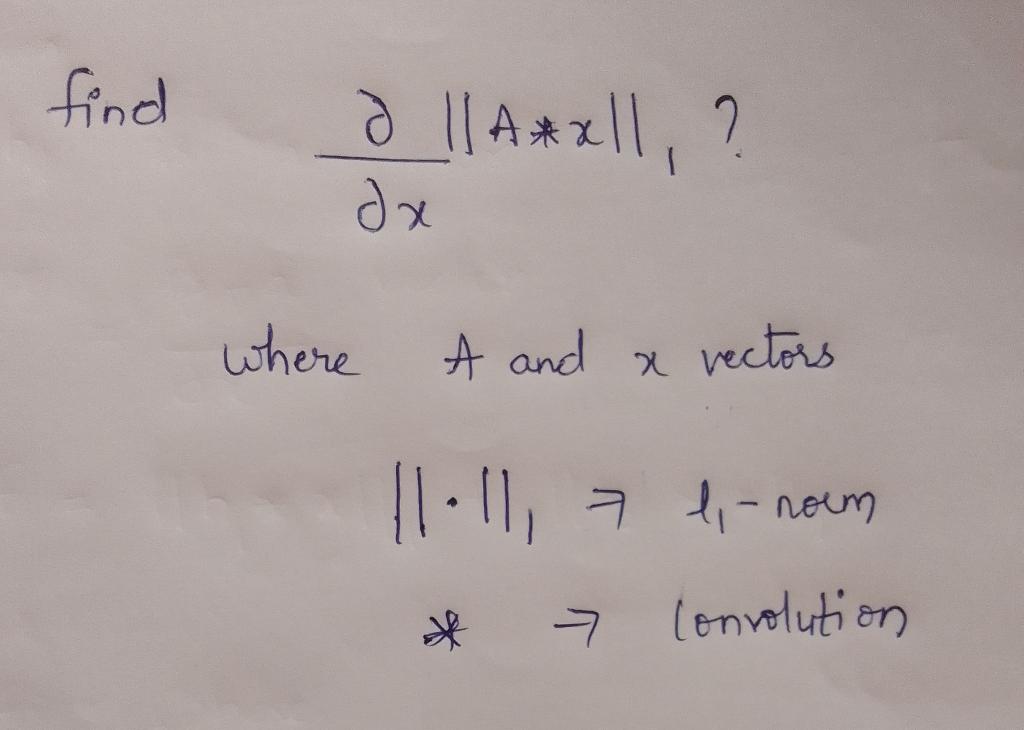 find ∂ ||A*x||₁ ?
∂x
where A and x vectors
||·||₁ → l₁-norm
* → Convolution